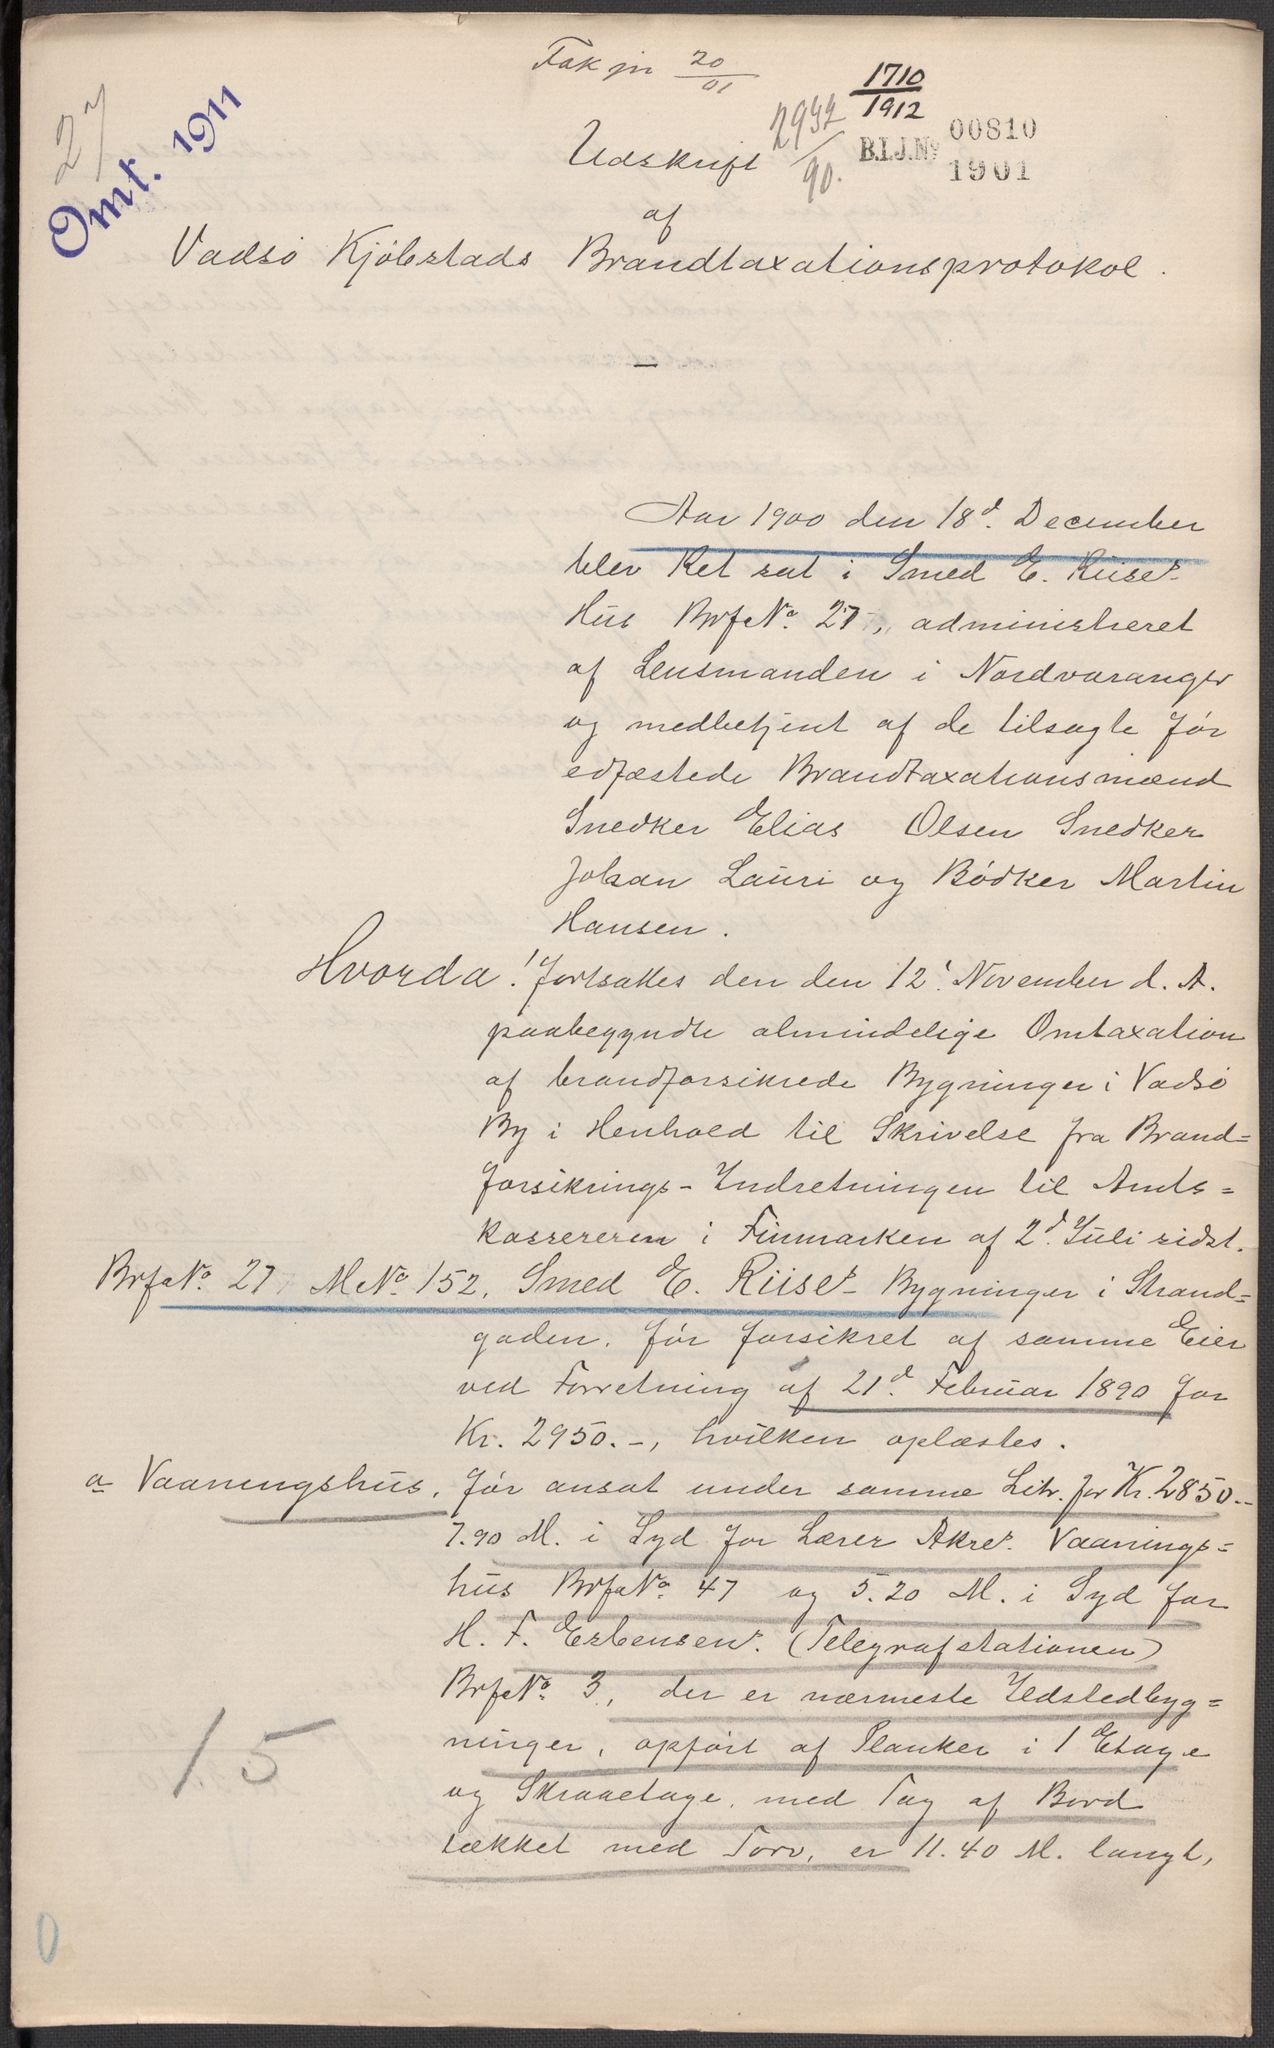 27
Omt. 1911
20/01
1710/1912
2932/90.
B.I.J.No 00810
1901
Udskrift
af
Vadsö Kjöbstads Brandtaxationsprotokol.
Aar 1900 den 18d. December
blev Ret sat i Smed E. Riises
Hus Brfa No. 27, administreret
af Lensmanden i Nordvaranger
og medbetjent af de tilsagte för
edfæstede Brandtaxationsmænd
Snedker Elias Olsen Snedker
Johan Lauri og Bödker Martin
Hansen.
Hvorda! fortsattes den den 12' November d. A.
paabegyndte almindelige Omtaxation
af brandforsikrede Bygninger i Vadsö
By i Henhold til Skrivelse fra Brand=
forsikrings-Indretningen til Amts=
kassereren i Finmarken af 2d. Juli sidst.
Brfa No. 27 M No. 152. Smed E. Riises Bygninger i Strand=
gaden. för forsikret af samme Eier
ved Forretning af 21d. Februar 1890 for
Kr. 2950.-, hvilken oplæstes.
a Vaaningshus. för ansat under samme Litr. for Kr. 2850.-
7.90 M. i Syd for Lærer Akres. Vaanings=
hus Brfa No. 47 og 5.20 M. i Syd for
H. F. Esbensens. (Telegrafstationen)
Brfa No. 3, der er nærmeste Ildstedbyg=
ninger, opfört af Planker i 1 Etage
og Skraaetage, med Tag af Bord
tækket med Torv, er 11.40 M. langt,
15
0